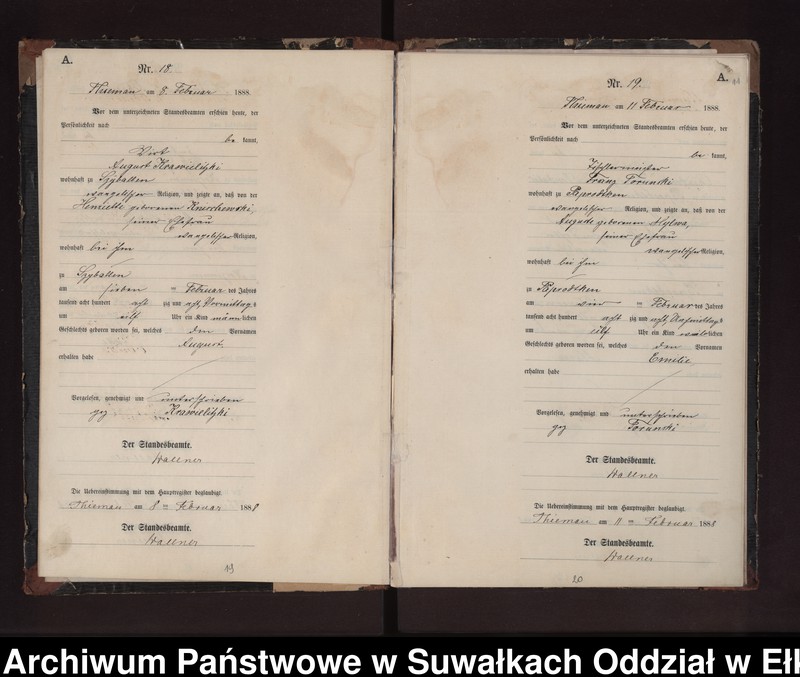 A.
Nr. 18.
Thieman am 8. Februar 1888.
Vor dem unterzeichneten Standesbeamten erschien heute, der
Persönlichkeit nach
be kannt,
Wirt
August Krawielitzki
wohnhaft zu Spyballen
evangelischer Religion, und zeigte an, daß von der
Henriette geborenen
seiner Ehefrau
evangelischer Religion,
wohnhaft bei ihm
zu Spyballen
am sieben ten Februar des Jahres
tausend acht hundert acht zig und acht, Vormittags
um elf Uhr ein Kind männlichen
Geschlechts geboren worden sei, welches den Vornamen
August
erhalten habe
Vorgelesen, genehmigt und unterschrieben
gez Krawielitzki
Der Standesbeamte.
Wallner
Die Uebereinstimmung mit dem Hauptregister beglaubigt
Thieman am 8 ten Februar 1888
Der Standesbeamte.
Wallner
19
A.
Nr. 19.
Thieman am 11 Februar 1888.
Vor dem unterzeichneten Standesbeamten erschien heute, der
Persönlichkeit nach
be kannt,
Tischlermeister
Franz Torunski
wohnhaft zu
evangelischer Religion, und zeigte an, daß von der
Auguste geborenen Hylwa,
seiner Ehefrau
evangelischer Religion,
wohnhaft bei ihm
zu
am vier ten Februar des Jahres
tausend acht hundert acht zig und acht, Nachmittags
um elf Uhr ein Kind weiblichen
Geschlechts geboren worden sei, welches den Vornamen
Emelie
erhalten habe
Vorgelesen, genehmigt und unterschrieben
gez Torunski
Der Standesbeamte.
Wallner
Die Uebereinstimmung mit dem Hauptregister beglaubigt.
Thieman am 11 ten Februar 1888
Der Standesbeamte.
Wallner
20
Archiwum Państwowe w Suwałkach Oddział w Ełk